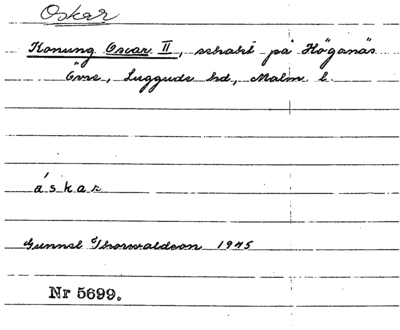 Oskar
Konung Oscar II, schakt på Höganäs
Övre, Luggude hd, Malm l.
áskar
Gunnel Thorwaldson 1945
Nr 5699.